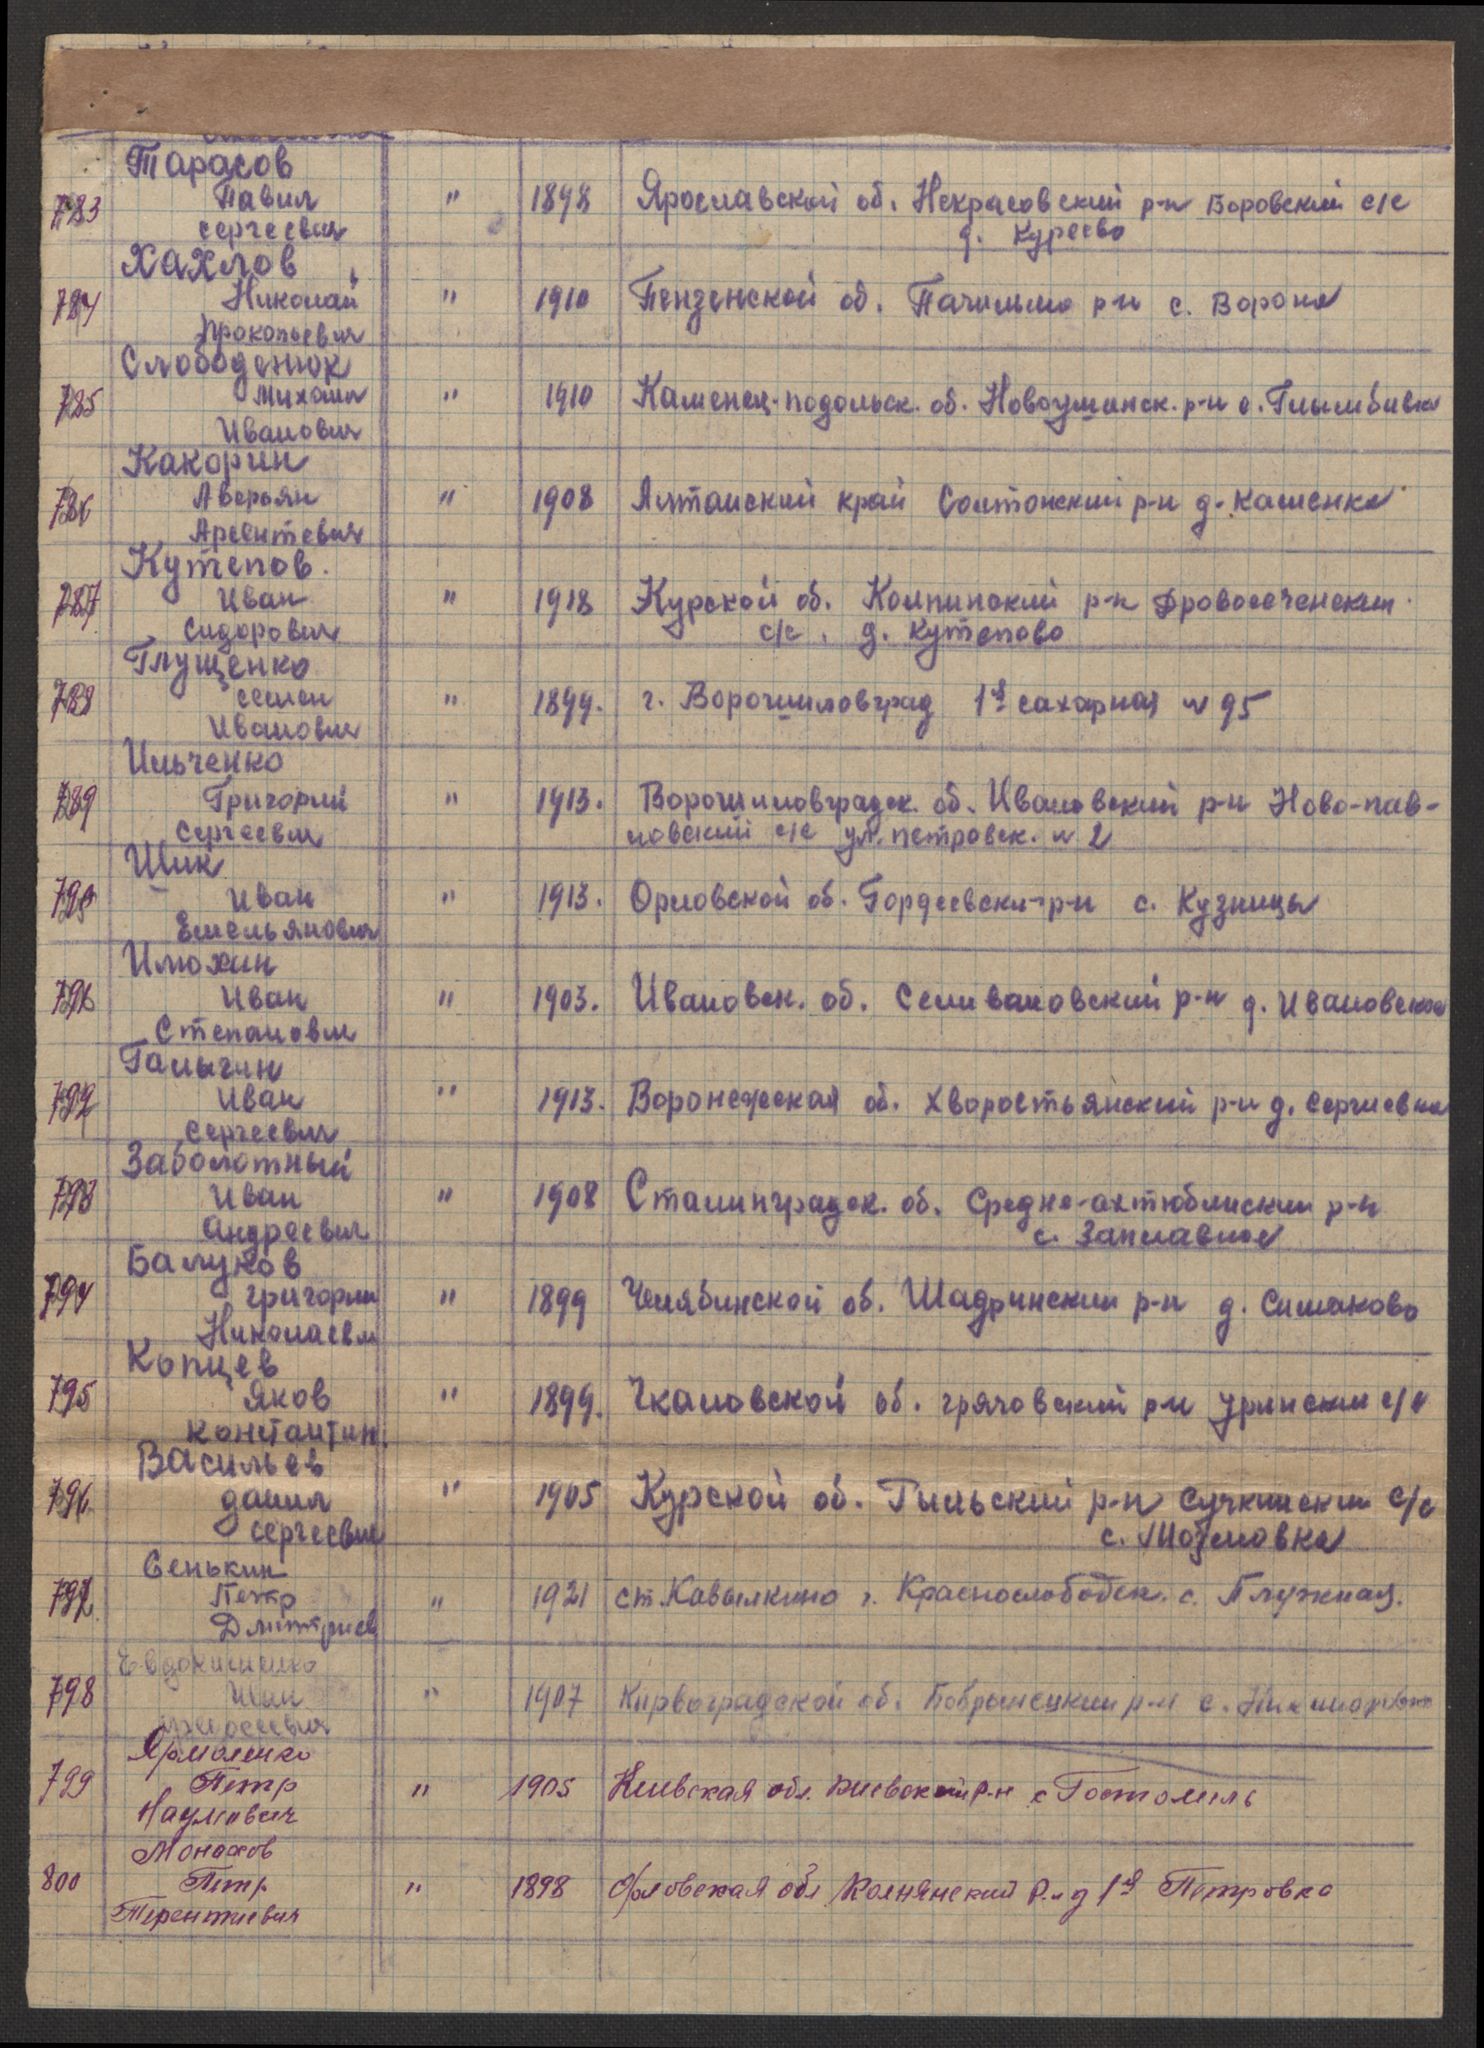 Тарасов
783 Павил " 1898 Ярославской об. Некрасовский р-н Боровский с/с
Сергеевич д. Куреево
Хахлов
784 Николай " 1910 Пензенской об. Пачильмо р-н с. Ворона
Прокопьевич
Слободенюк
785 Михаил " 1910 Каменец-подольск. об. Новоушинск. р-н с.
Иванович
Какорин
786 Аверьян " 1908 Алтайский край Солтонский р-н д. Каменка
Арсентевич
Кутепов.
787 Иван " 1918 Курской об. Колпинский р-н Дровосеченским
Сидорович с/с. д. Кутепово
Глущенко
788 Семен " 1899. г. Ворошиловград 1я сахарная № 95
Иванович
Ильченко
789 Григорий " 1913. Ворошиловградск. об. Ивановский р-н Ново-пав-
Сергеевич ловский с/с ул. петровск. № 2
Шик
790 Иван " 1913. Орловской об. Гордеевски-р-н с. Кузницы
Емельянович
Илюхин
791 Иван " 1903. Ивановск. об. Селивановский р-н д. Ивановская
Степанович
Галычин
792 Иван " 1913. Воронежская об. Хворостьянский р-н д. Сергиевка
Сергеевич
Заболотный
793 Иван " 1908 Сталинградск. об. Средне-ахтюбинский р-н
Андреевич с. Заплавное
Балуков
794 Григории " 1899 Челябинской об. Шадринский р-н д. Симаково
Николаевич
Копцев
795 Яков " 1899. Чкаловской об. грячовский р-н уринский с/с
Константин.
Васильев
796 данил " 1905 Курской об. р-н Сучкинским с/с
сергеевич с.
Сенькин
797 Петр " 1921 ст. Кавылкино г. Краснослободск. с. Плужная.
Дмитриев
Евдокименко
798 Иван " 1907 Кирвоградской об. Бобрынецкий р-н с.
Ярмоленко
799 Петр " 1905 Киевская обл. Киевский р-н с Гостомель
Наумович
Монахов
800 Петр " 1898 Орловская обл р-н д 1я Петровка
Терентиевич